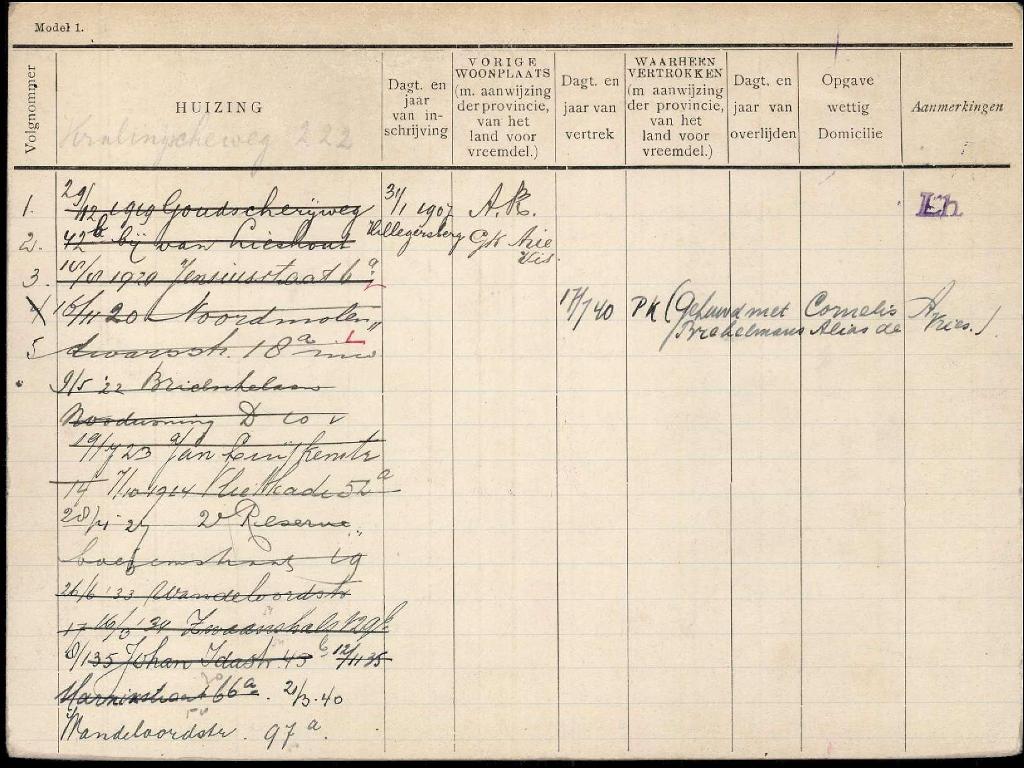 Model 1.
Volgnommer
HUIZING
Kralingscheweg 222
Dagt. en
jaar
van in-
schrijving
VORIGE
WOONPLAATS
(m. aanwijzing
der provincie,
van het
land voor
vreemdel.)
Dagt. en
jaar van
vertrek
WAARHEEN
VERTROKKEN
(m aanwijzing
der provincie,
van het
land voor
vreemdel.)
Dagt. en
jaar van
overlijden
Opgave
wettig
Domicilie
Aanmerkingen
1. 29/12 1919 Goudscherijweg 31/1 1907 A.K. Eh
2. 42b bij van Lieshout Hillegersberg GK Arie
3. 18/8 1920 Jensiusstraat 6a
4 16/11 20 Noordmolen„ 17/7 40 PK (Gehuwd met Cornelis A
5 dwarsstr. 18a Brekelmans Alias de Kies.)
9/5 '22 Brielschelaan
Noodwoning D
19/7 23 Jan
14 7/10 1924 Vlietkade 52a
28/ 27 2e Reserve„
boezemstraat 19
26/6 '33 Wandeloordstr
17 '34 Zwaanshals
8/1 35 Johan Idastr. 45b 12/11 35
66a. 2/3.40
Wandeloordstr. 97a.